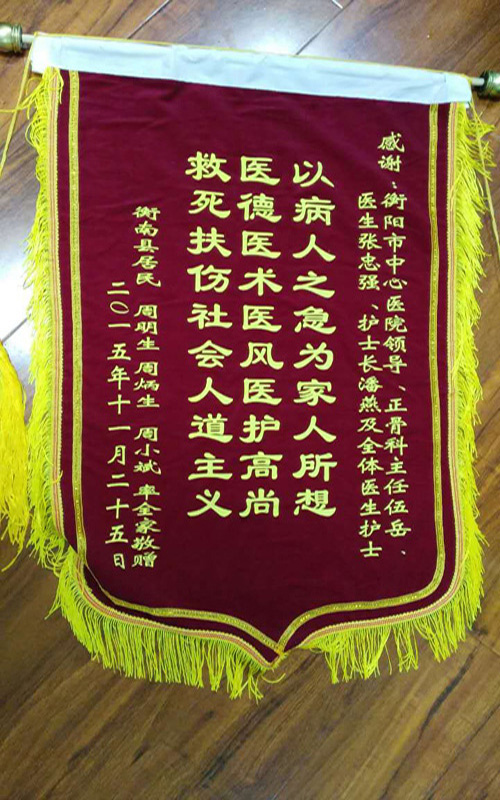 感谢：衡阳市中心医院领导、正骨科主任伍岳、
医生张忠强、护士长潘燕及全体医生护士
以病人之急为家人所想
医德医术医风医护高尚
救死扶伤社会人道主义
衡南县居民 周明生 周炳生 周小斌 率全家敬赠
二〇一五年十一月二十五日